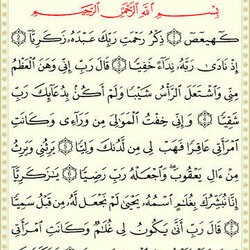 بِسْمِ ٱللَّهِ ٱلرَّحْمَٰنِ ٱلرَّحِيمِ
كٓهيعٓصٓ ۝ ذِكْرُ رَحْمَتِ رَبِّكَ عَبْدَهُۥ زَكَرِيَّآ ۝
إِذْ نَادَىٰ رَبَّهُۥ نِدَآءً خَفِيًّا ۝ قَالَ رَبِّ إِنِّي وَهَنَ ٱلْعَظْمُ
مِنِّي وَٱشْتَعَلَ ٱلرَّأْسُ شَيْبًا وَلَمْ أَكُنۢ بِدُعَآئِكَ رَبِّ
شَقِيًّا ۝ وَإِنِّي خِفْتُ ٱلْمَوَٰلِيَ مِن وَرَآءِي وَكَانَتِ
ٱمْرَأَتِي عَاقِرًا فَهَبْ لِي مِن لَّدُنكَ وَلِيًّا ۝ يَرِثُنِي وَيَرِثُ
مِنْ ءَالِ يَعْقُوبَ ۖ وَٱجْعَلْهُ رَبِّ رَضِيًّا ۝ يَٰزَكَرِيَّآ
إِنَّا نُبَشِّرُكَ بِغُلَٰمٍ ٱسْمُهُۥ يَحْيَىٰ لَمْ نَجْعَل لَّهُۥ مِن قَبْلُ سَمِيًّا
۝ قَالَ رَبِّ أَنَّىٰ يَكُونُ لِي غُلَٰمٌ وَكَانَتِ ٱمْرَأَتِي